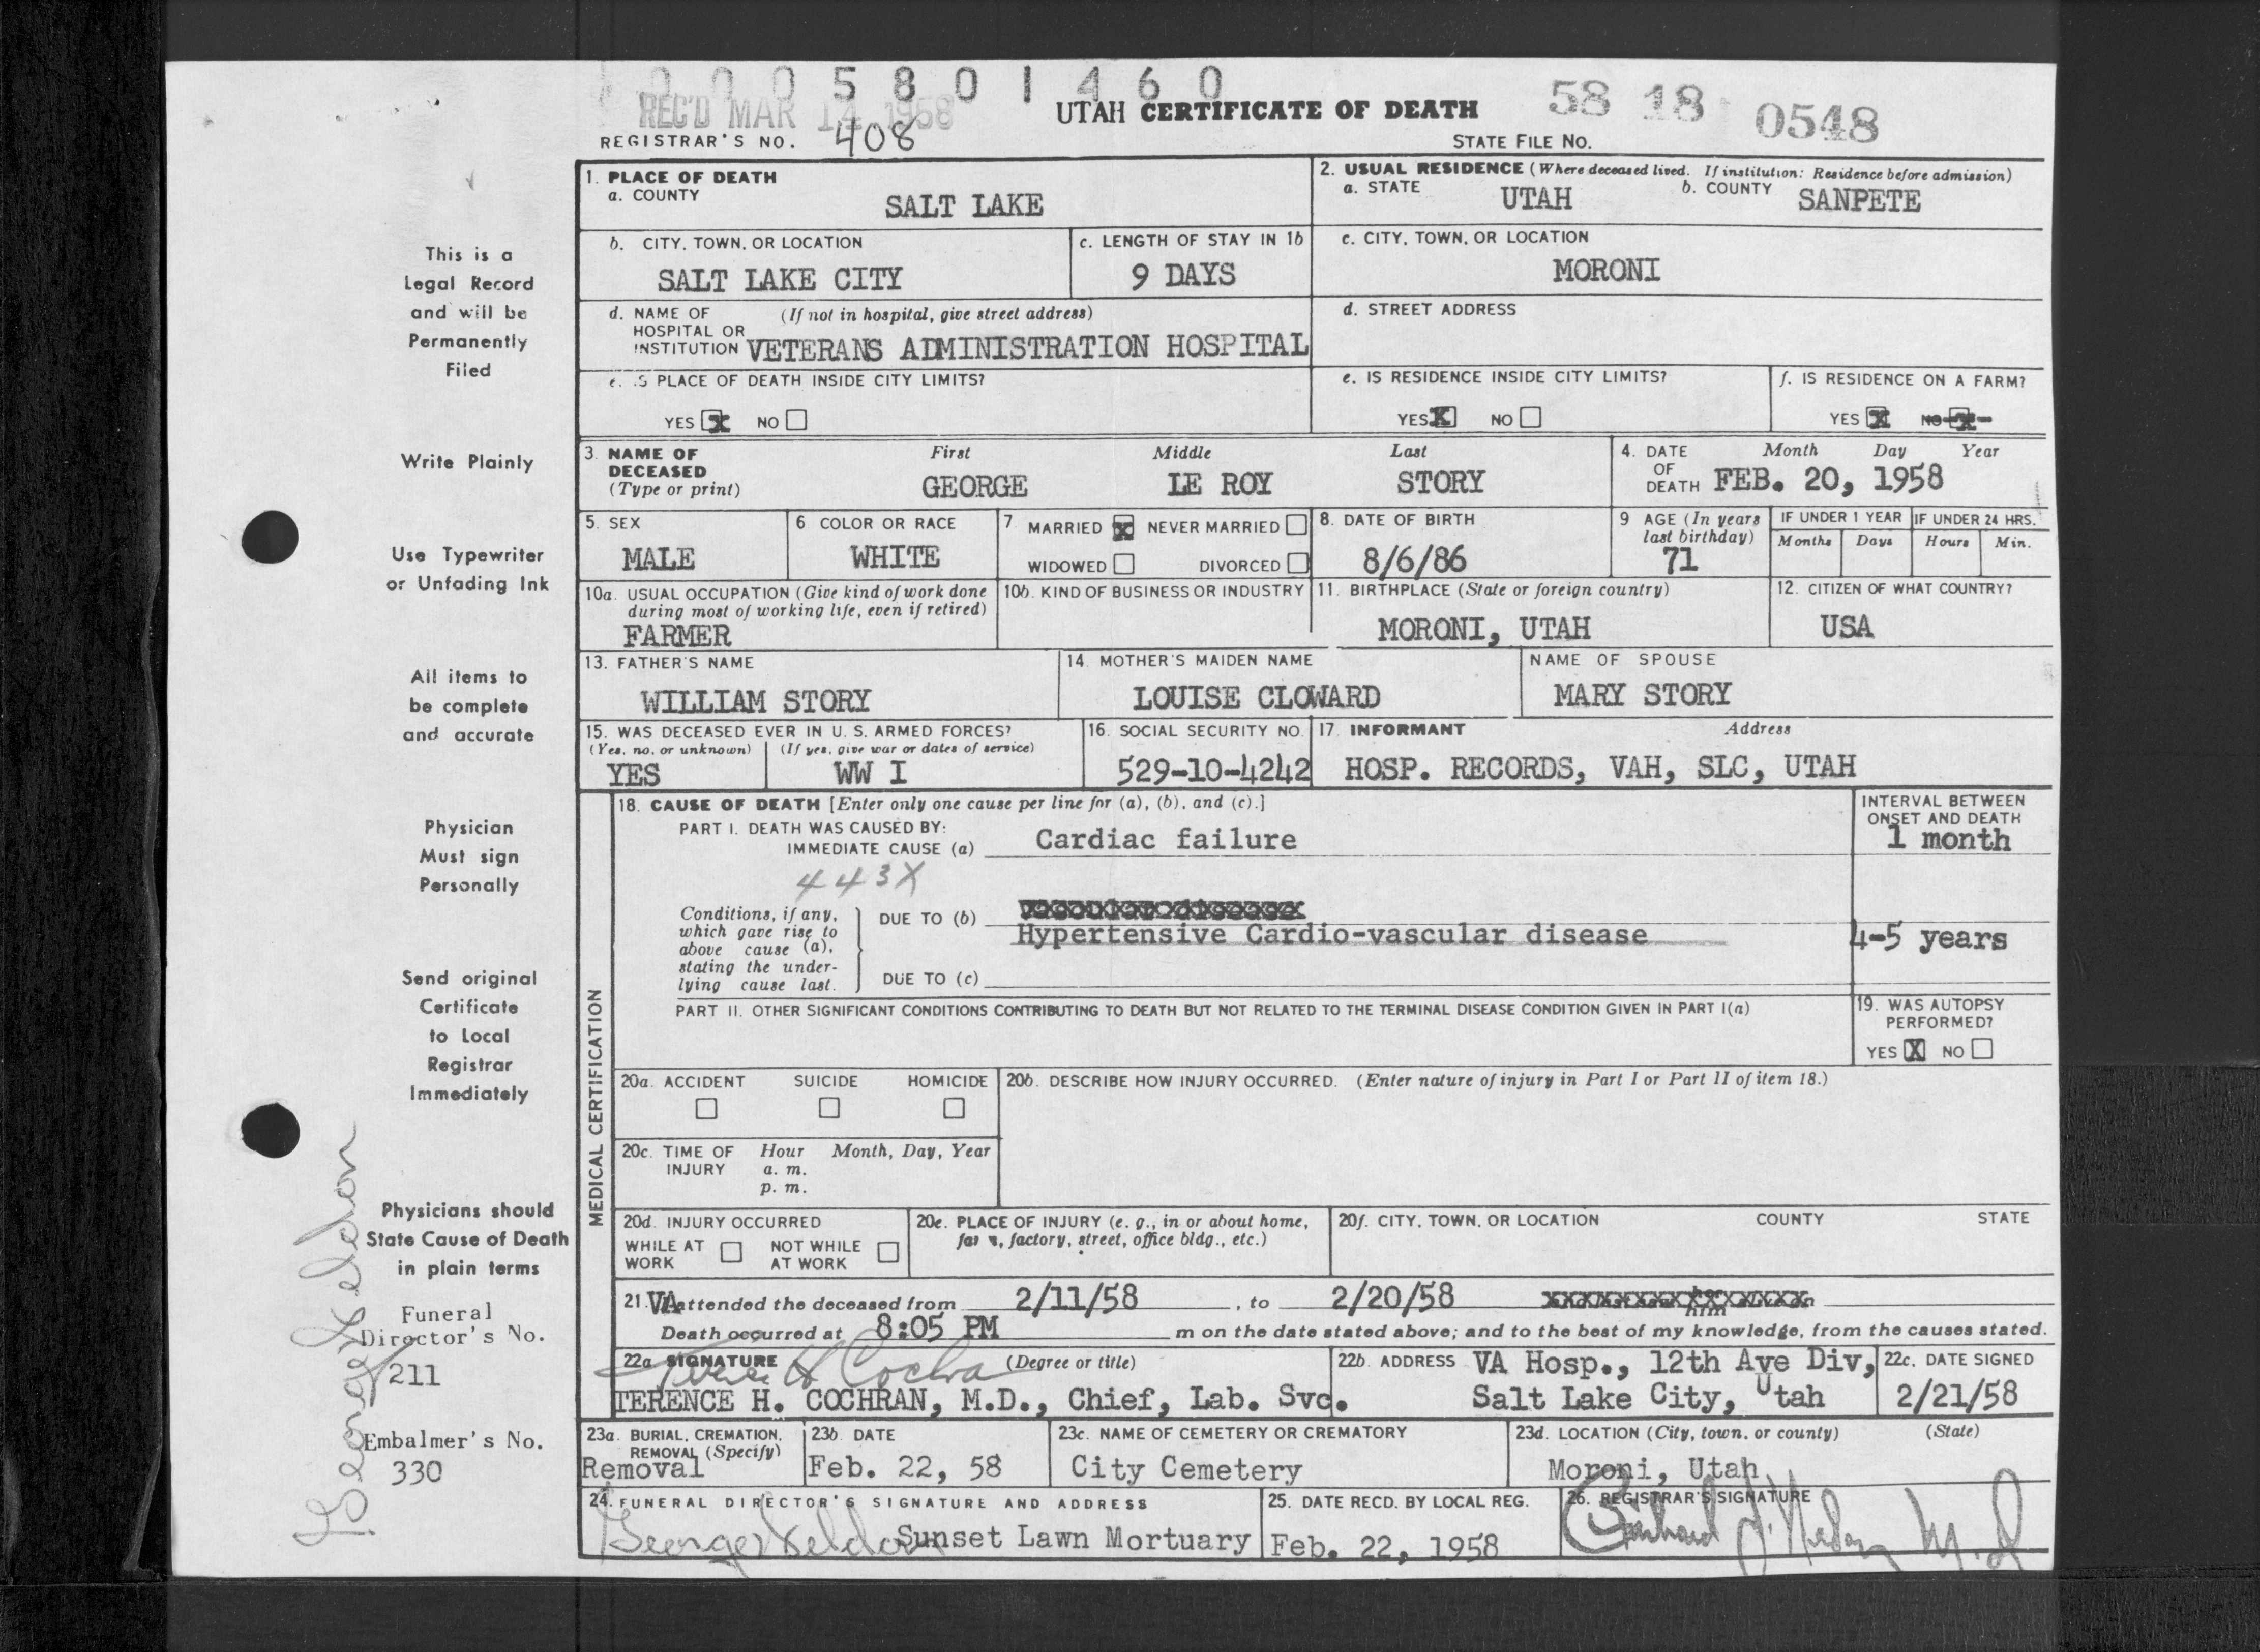 0 0 0 5 8 0 1 4 6 0
REC'D MAR 14 1958
UTAH CERTIFICATE OF DEATH
58 18 0548
REGISTRAR'S NO. 408
STATE FILE NO.
1. PLACE OF DEATH
a. COUNTY
SALT LAKE
2. USUAL RESIDENCE (Where deceased lived. If institution: Residence before admission)
a. STATE UTAH b. COUNTY SANPETE
b. CITY, TOWN, OR LOCATION
SALT LAKE CITY
c. LENGTH OF STAY IN 1b
9 DAYS
c. CITY, TOWN, OR LOCATION
MORONI
d. NAME OF (If not in hospital, give street address)
HOSPITAL OR
INSTITUTION VETERANS ADMINISTRATION HOSPITAL
d. STREET ADDRESS
e. IS PLACE OF DEATH INSIDE CITY LIMITS?
YES X NO
e. IS RESIDENCE INSIDE CITY LIMITS?
YES X NO
f. IS RESIDENCE ON A FARM?
YES X NO X
3. NAME OF DECEASED
(Type or print)
First Middle Last
GEORGE LE ROY STORY
4. DATE OF DEATH
Month Day Year
FEB. 20, 1958
5. SEX
MALE
6 COLOR OR RACE
WHITE
7 MARRIED X NEVER MARRIED
WIDOWED DIVORCED
8. DATE OF BIRTH
8/6/86
9 AGE (In years last birthday)
71
IF UNDER 1 YEAR
Months Days
IF UNDER 24 HRS.
Hours Min.
10a. USUAL OCCUPATION (Give kind of work done
during most of working life, even if retired)
FARMER
10b. KIND OF BUSINESS OR INDUSTRY
11. BIRTHPLACE (State or foreign country)
MORONI, UTAH
12. CITIZEN OF WHAT COUNTRY?
USA
13. FATHER'S NAME
WILLIAM STORY
14. MOTHER'S MAIDEN NAME
LOUISE CLOWARD
NAME OF SPOUSE
MARY STORY
15. WAS DECEASED EVER IN U. S. ARMED FORCES?
(Yes, no, or unknown) (If yes, give war or dates of service)
YES WW I
16. SOCIAL SECURITY NO.
529-10-4242
17. INFORMANT Address
HOSP. RECORDS, VAH, SLC, UTAH
MEDICAL CERTIFICATION
18. CAUSE OF DEATH [Enter only one cause per line for (a), (b), and (c).]
PART I. DEATH WAS CAUSED BY:
IMMEDIATE CAUSE (a) Cardiac failure
443X
INTERVAL BETWEEN
ONSET AND DEATH
1 month
Conditions, if any,
which gave rise to
above cause (a),
stating the under-
lying cause last.
DUE TO (b)
Hypertensive Cardio-vascular disease
4-5 years
DUE TO (c)
PART II. OTHER SIGNIFICANT CONDITIONS CONTRIBUTING TO DEATH BUT NOT RELATED TO THE TERMINAL DISEASE CONDITION GIVEN IN PART I(a)
19. WAS AUTOPSY
PERFORMED?
YES X NO
20a. ACCIDENT SUICIDE HOMICIDE
20b. DESCRIBE HOW INJURY OCCURRED. (Enter nature of injury in Part I or Part II of item 18.)
20c. TIME OF INJURY
Hour Month, Day, Year
a. m.
p. m.
20d. INJURY OCCURRED
WHILE AT WORK NOT WHILE AT WORK
20e. PLACE OF INJURY (e. g., in or about home,
farm, factory, street, office bldg., etc.)
20f. CITY, TOWN, OR LOCATION COUNTY STATE
21. VA attended the deceased from 2/11/58, to 2/20/58
Death occurred at 8:05 PM m on the date stated above; and to the best of my knowledge, from the causes stated.
22a SIGNATURE (Degree or title)
Terence H Cochran
TERENCE H. COCHRAN, M.D., Chief, Lab. Svc.
22b. ADDRESS VA Hosp., 12th Ave Div,
Salt Lake City, Utah
22c. DATE SIGNED
2/21/58
23a. BURIAL, CREMATION,
REMOVAL (Specify)
Removal
23b. DATE
Feb. 22, 58
23c. NAME OF CEMETERY OR CREMATORY
City Cemetery
23d. LOCATION (City, town, or county) (State)
Moroni, Utah
24. FUNERAL DIRECTOR'S SIGNATURE AND ADDRESS
George Seldon Sunset Lawn Mortuary
25. DATE RECD. BY LOCAL REG.
Feb. 22, 1958
26. REGISTRAR'S SIGNATURE
This is a
Legal Record
and will be
Permanently
Filed
Write Plainly
Use Typewriter
or Unfading Ink
All items to
be complete
and accurate
Physician
Must sign
Personally
Send original
Certificate
to Local
Registrar
Immediately
Physicians should
State Cause of Death
in plain terms
Funeral
Director's No.
211
Embalmer's No.
330
George Seldon